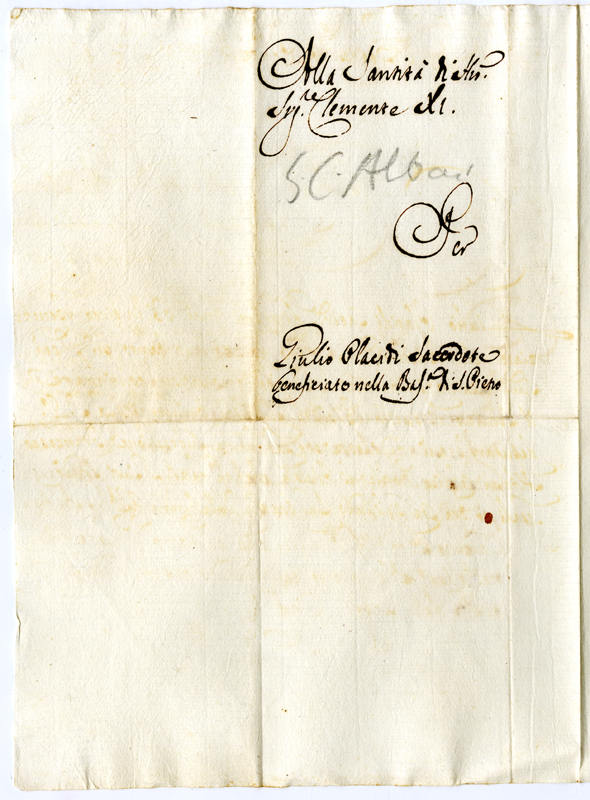 Alla Santità di Nro.
Sig.re Clemente XI.
S C. Albani
Per
Giulio Placidi Sacerdote
benefiziato nella Bas.ca di S. Pietro